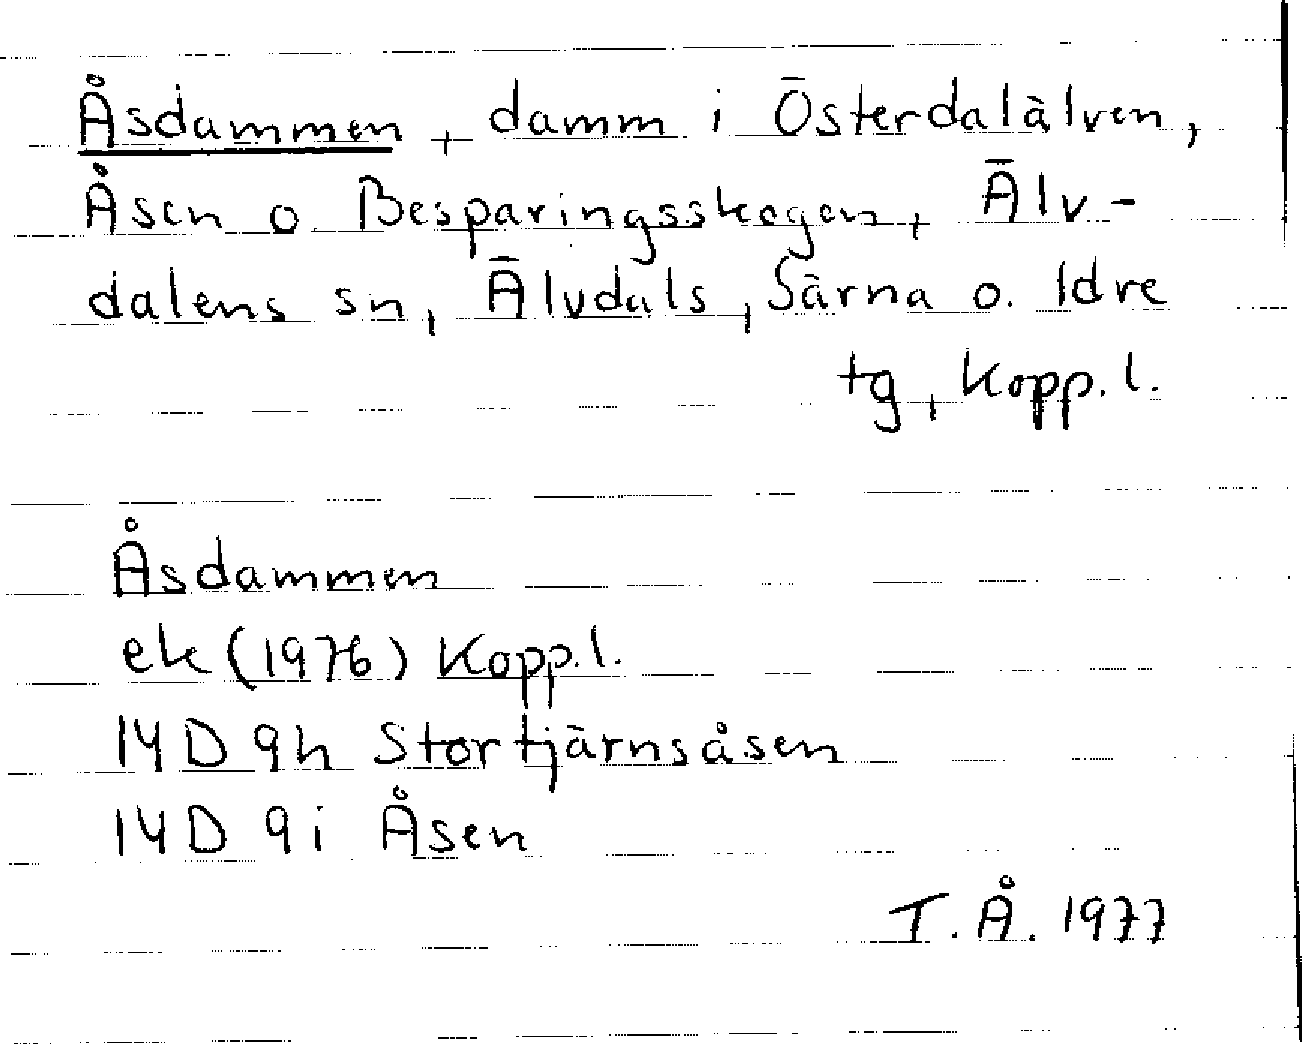 Åsdammen, damm i Österdalälven,
Åsen o. Besparingsskogen, Älv-
dalens sn, Älvdals, Särna o. Idre
tg, Kopp. l.
Åsdammen
ek (1976) Kopp. l.
14D 9h Stortjärnsåsen
14D 9i Åsen
T. Å. 1977